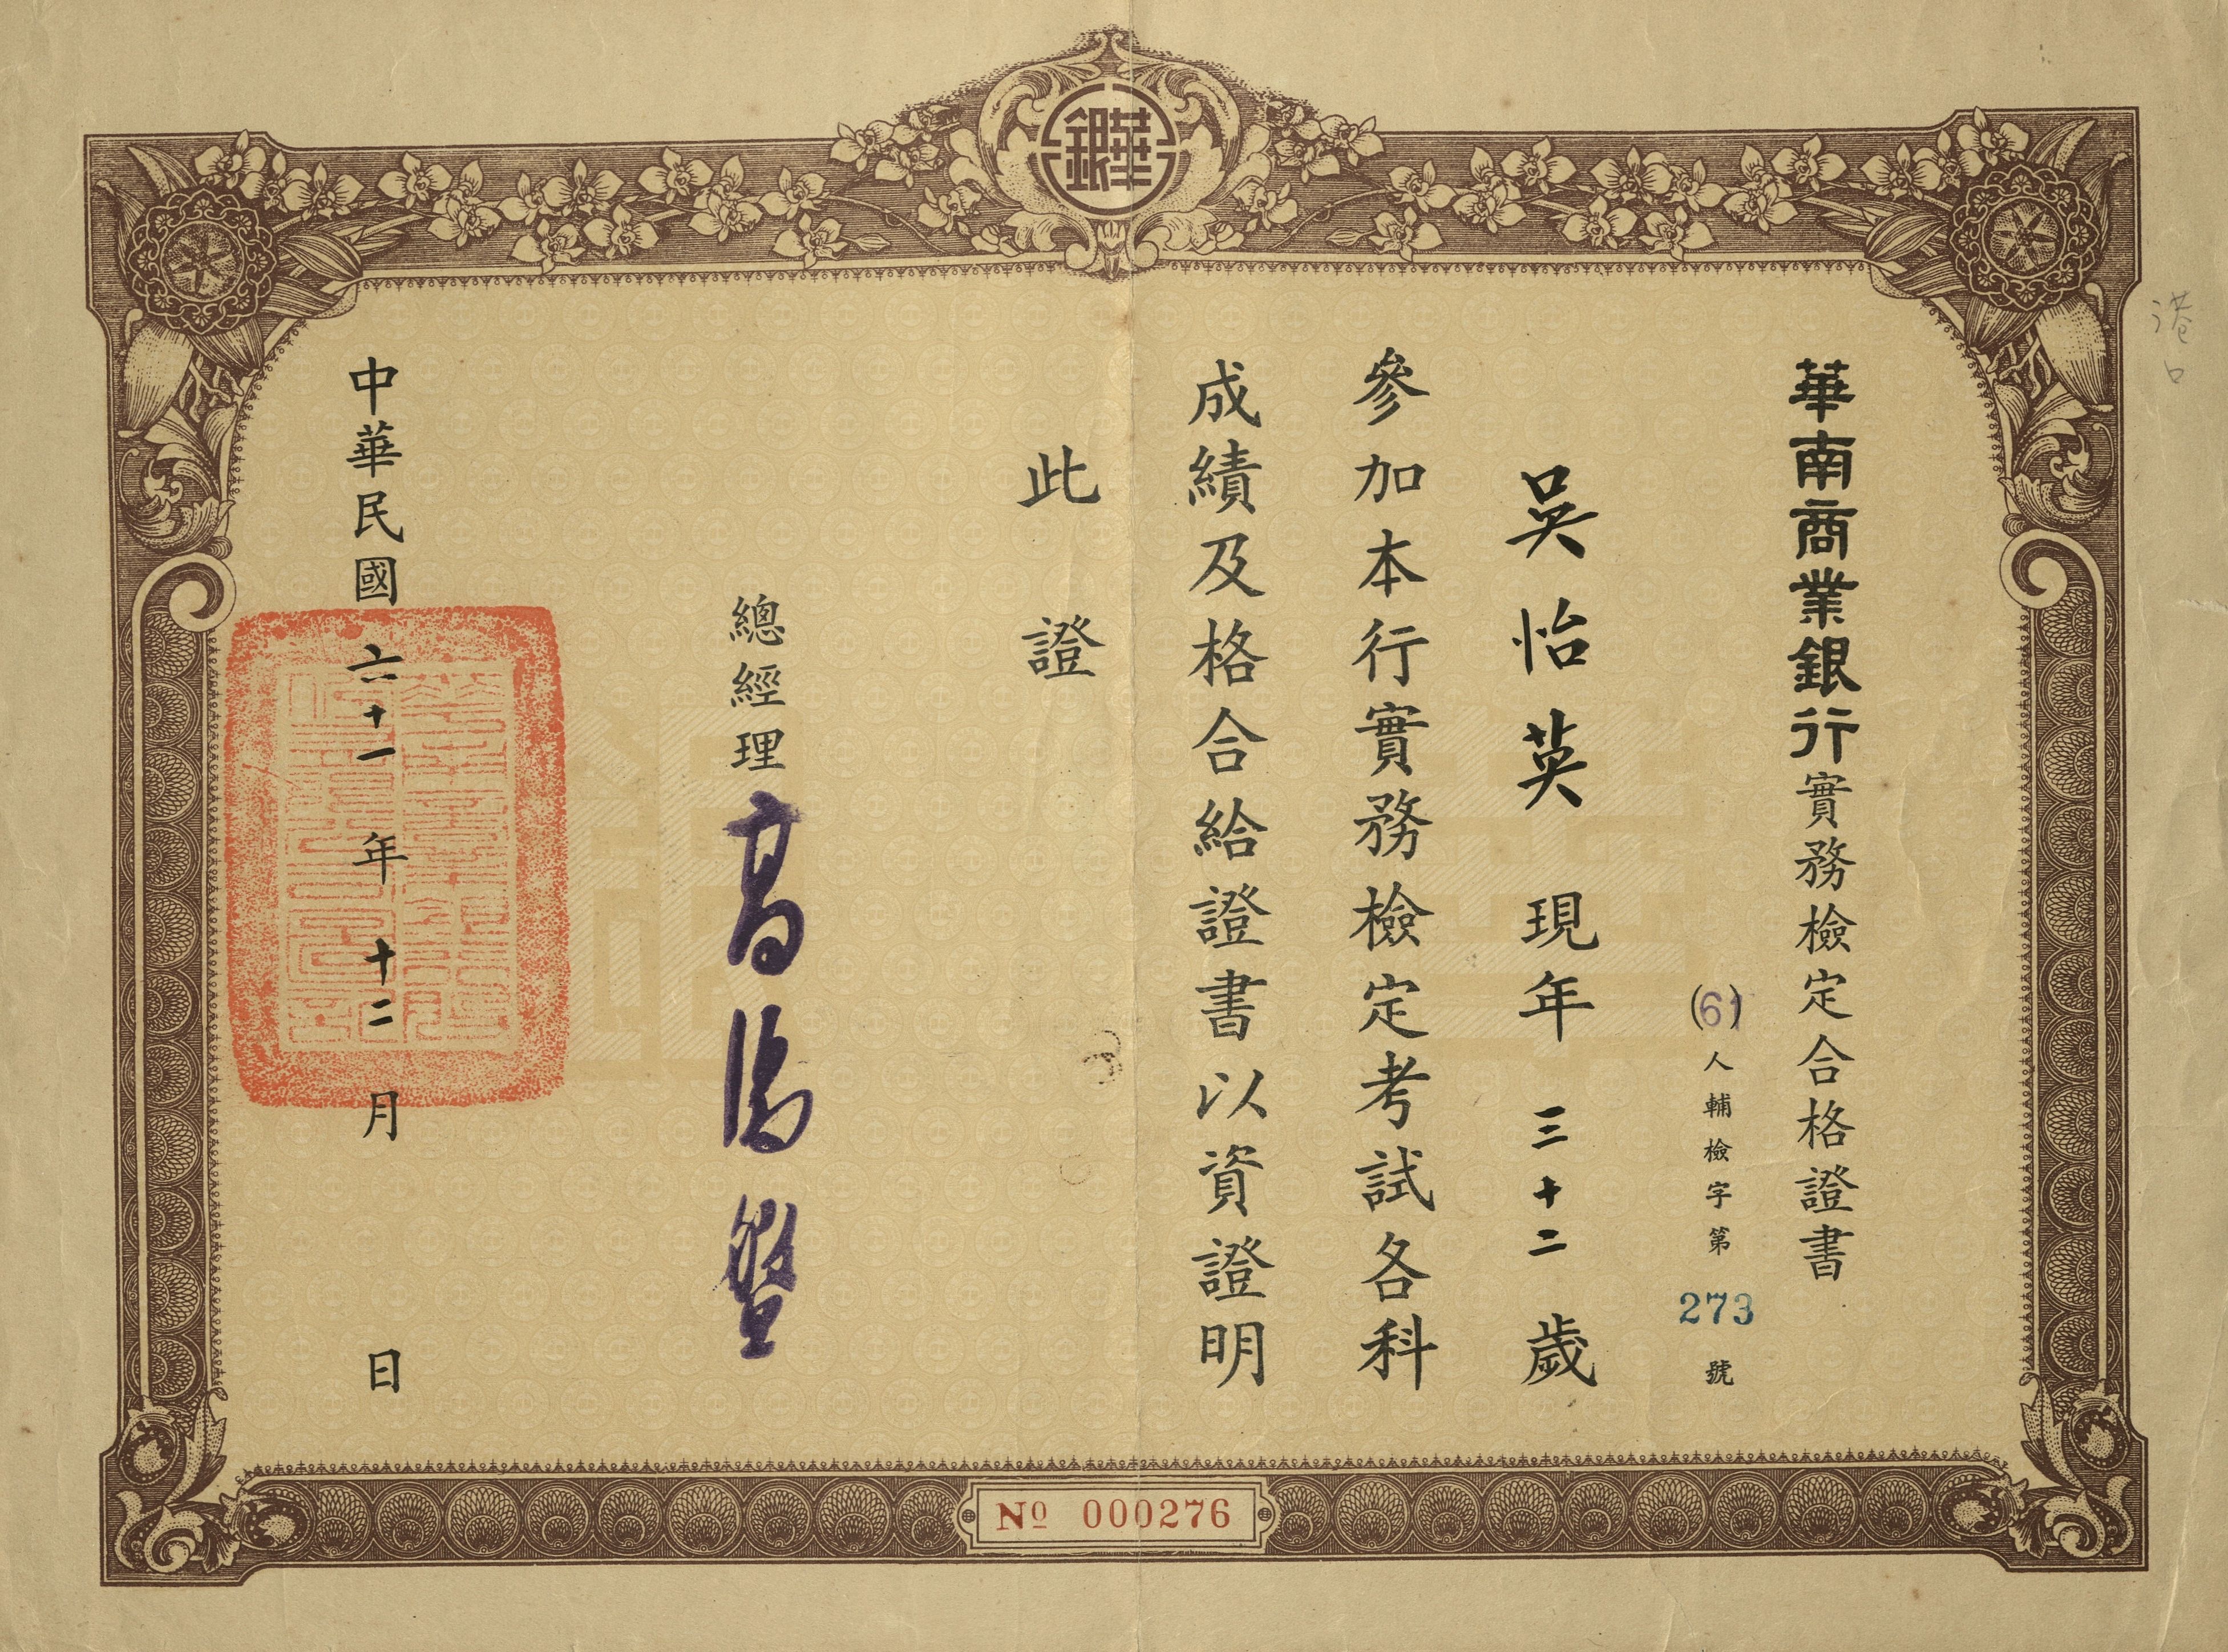 華銀
華南商業銀行實務檢定合格證書
(61)人輔檢字第273號
吳怡英 現年三十二歲
參加本行實務檢定考試各科
成績及格合給證書以資證明
此證
總經理 高湯盤
中華民國六十一年十二月 日
No 000276
港口